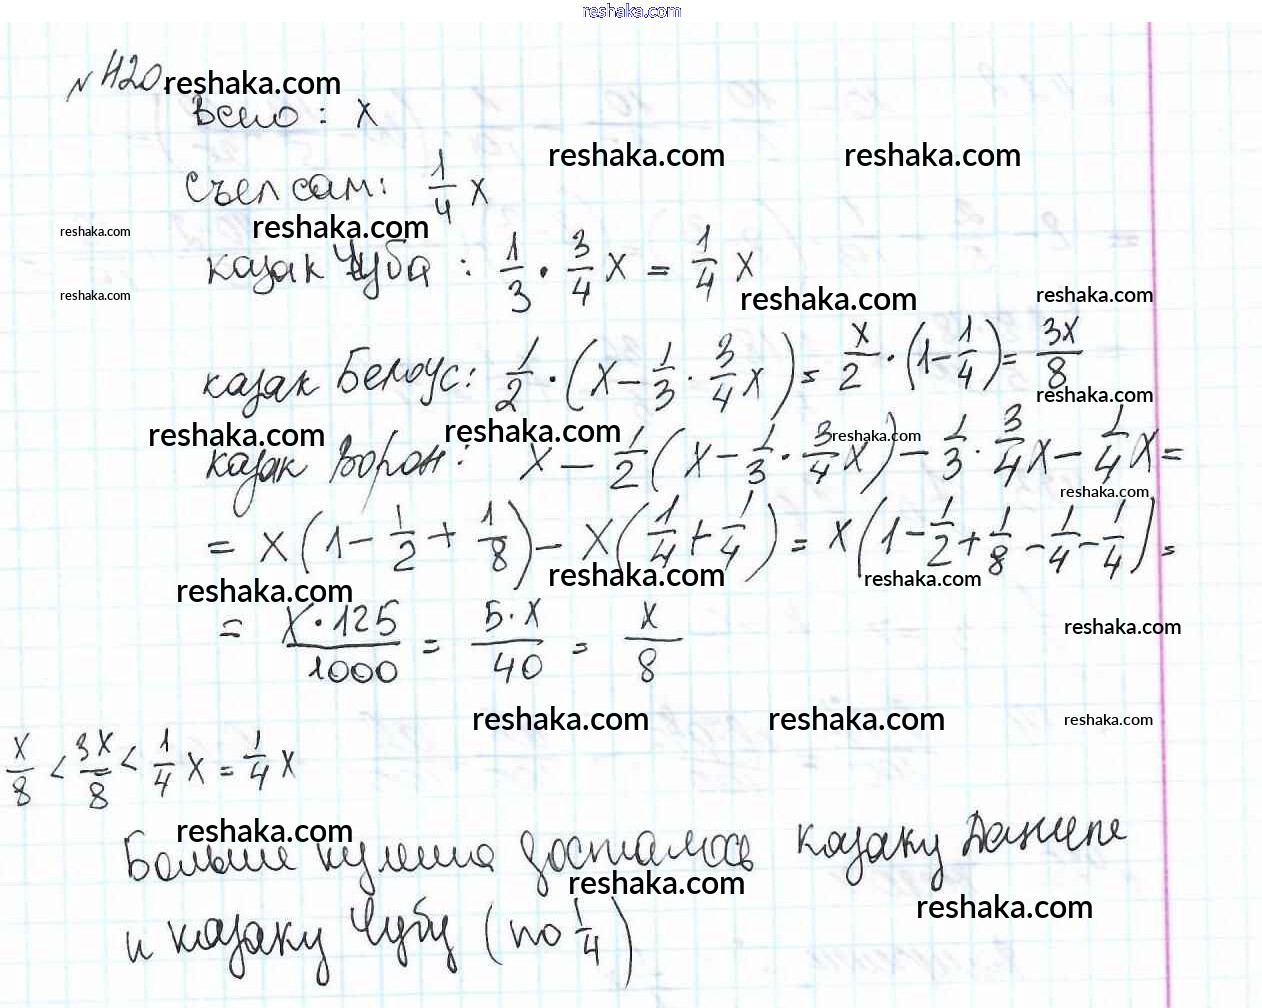 reshaka.com
№420. reshaka.com
Всего : x
reshaka.com reshaka.com
Съел сам: 1/4 x
reshaka.com reshaka.com
казак Чуба : 1/3 · 3/4 x = 1/4 x
reshaka.com reshaka.com reshaka.com
казак Белоус: 1/2 · (x - 1/3 · 3/4 x) = x/2 · (1 - 1/4) = 3x/8
reshaka.com
reshaka.com reshaka.com reshaka.com
казак Ворон: x - 1/2 (x - 1/3 · 3/4 x) - 1/3 · 3/4 x - 1/4 x =
reshaka.com
= x (1 - 1/2 + 1/8) - x (1/4 + 1/4) = x (1 - 1/2 + 1/8 - 1/4 - 1/4) =
reshaka.com reshaka.com reshaka.com
= x·125/1000 = 5·x/40 = x/8
reshaka.com
reshaka.com reshaka.com reshaka.com
x/8 < 3x/8 < 1/4 x = 1/4 x
reshaka.com
Больше кулеша досталось казаку Даниле
reshaka.com reshaka.com
и казаку Чубу (по 1/4)